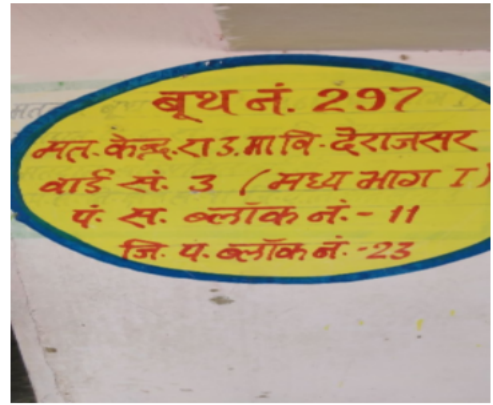 बूथ नं. 297
मत.केन्द्र.रा.उ.मा वि-देराजसर
वार्ड सं. 3 (मध्य भाग I)
पं. स. ब्लॉक नं.- 11
जि. प. ब्लॉक नं.-23